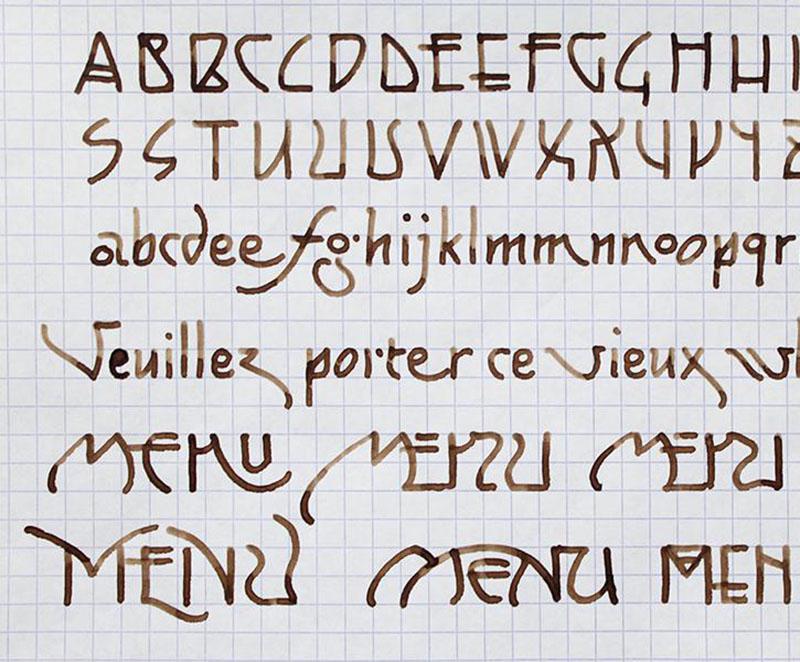 ABBCCDDEEFGGHHI
SSTUUUVWXXYYYZ
abcdeefghijklmmnnoopqr
Veuillez porter ce vieux
MENU MENU MENU
MENU MENU MEN